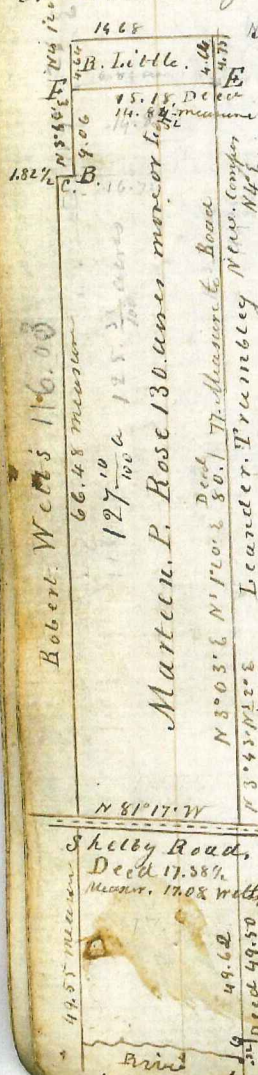 1468
4.64
B. Little.
4.64
F
E
15.18 Deed
14.84 measure
9.06
1.82½
B.
C.
Robert Wells 116.00
66.48 measure
127 10/100 a
125. 33/100 acres
Marteen. P. Rose 130 acres more or L.
N 3°03'E N 1°20'E Deed 80.1 77. Measure to Road
Leander. Trumbley New. Compass N4°E
N 81°17'. W
Shelby Road.
Deed 17.38½
Measur. 17.08 Wells
49.55 measure
49.62
Deed 49.50
River